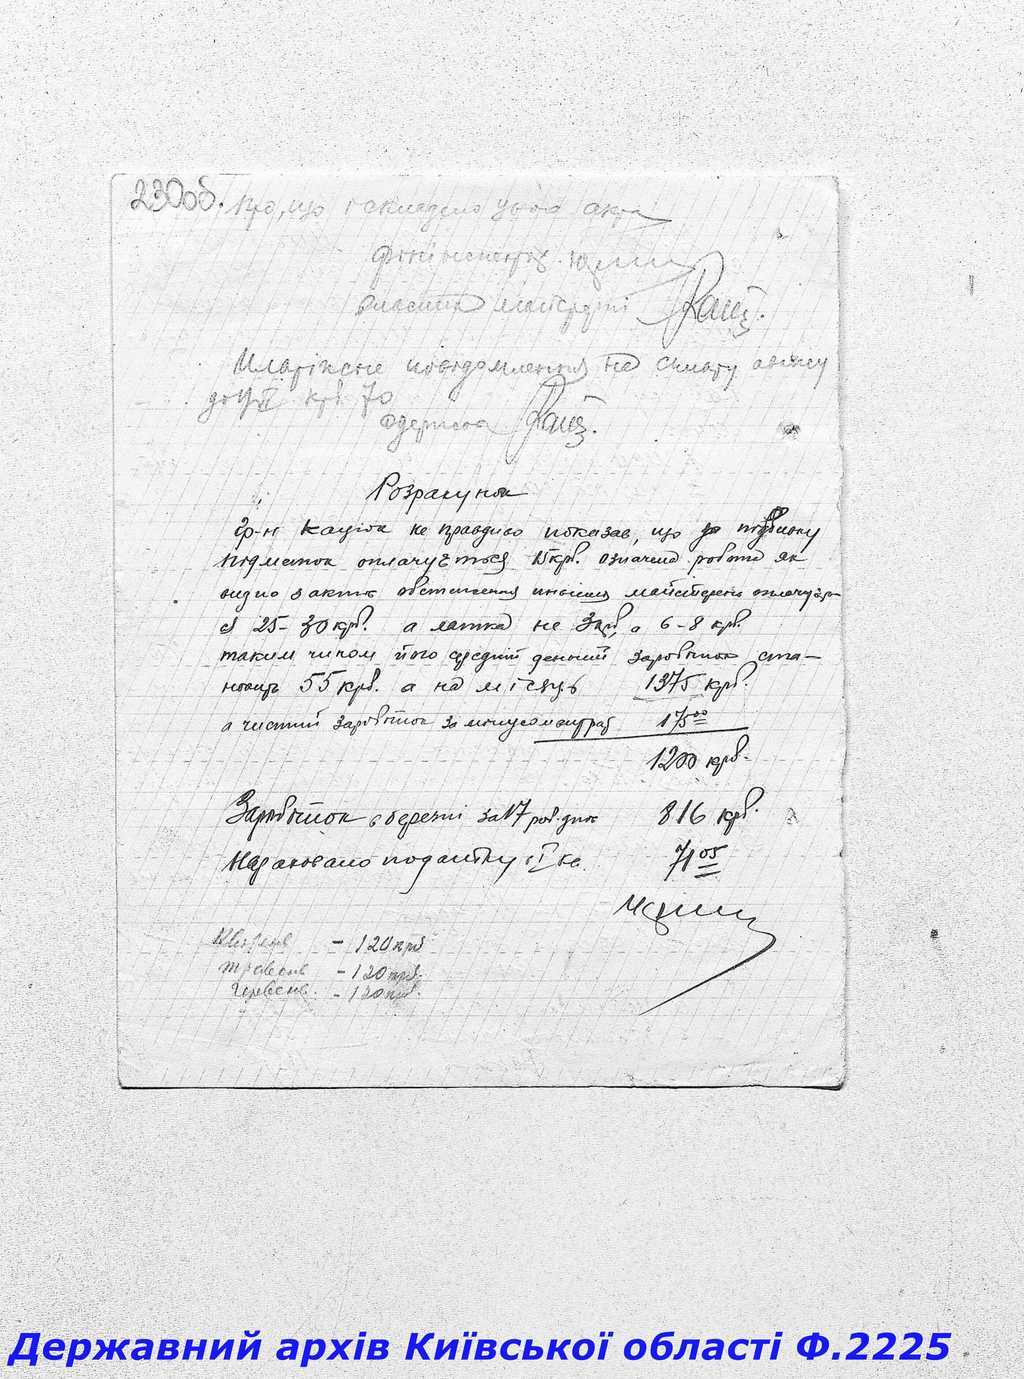 230об.
про, що і складено цього акта
фінінспектор
власник майстерні
Платіжне повідомлення на сплату авансу
до кв. 70
одержав
Розрахунок
Гр-н Кацюк не правдиво показав, що за підбивку
підметок оплачується 15 крб. означена робота як
видно з актів обстеження инших майстерень оплачуэть-
ся 25-30 крб. а латка не 3 крб, а 6-8 крб.
таким чином його середній денний заробіток ста-
новить 55 крб. а на місяць 1375 крб.
а чистий заробіток за минусом 175 00
1200 крб.
Заробіток в березні за 17 роб. днів 816 крб.
Нараховано податку I кв. 71 05
Квітень - 120 крб
травень - 120 крб.
Червень. - 120 крб.
Державний архів Київської області Ф.2225